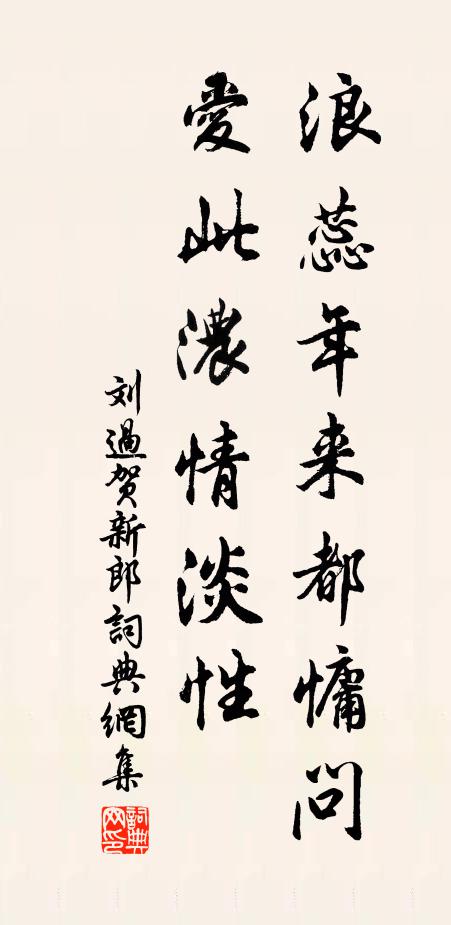 浪蕊年来都慵问
愛此濃情淡性
刘過贺新郎詞典網集
詞典网印